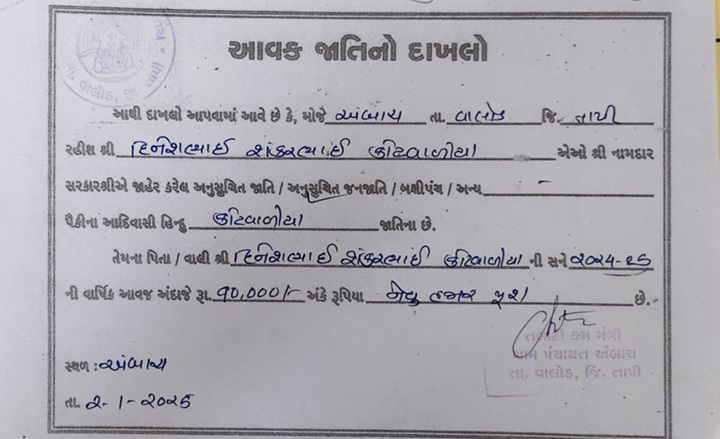 તા. વાલોડ, જી. તાપી
આવક જાતિનો દાખલો
આથી દાખલો આપવામાં આવે છે કે, મોજે અંબાચ તા. વાલોડ જિ. તાપી
રહીશ શ્રી દિનેશભાઈ શંકરભાઈ કોટવાળીયા એઓ શ્રી નામદાર
સરકારશ્રીએ જાહેર કરેલ અનુસુચિત જાતિ / અનુસુચિત જનજાતિ / બક્ષીપંચ / અન્ય -
પૈકીના આદિવાસી હિન્દુ કોટવાળીયા જાતિના છે.
તેમના પિતા / વાલી શ્રી દિનેશભાઈ શંકરભાઈ કોટવાળીયા ની સને ૨૦૨૫-૨૬
ની વાર્ષિક આવજ અંદાજે રૂા. ૧૦,૦૦૦/- અંકે રૂપિયા હજાર પુરા છે.
તલાટી કમ મંત્રી
ગ્રામ પંચાયત અંબાચ
તા. વાલોડ, જિ. તાપી
સ્થળ : અંબાચ
તા. ૨-૧-૨૦૨૬